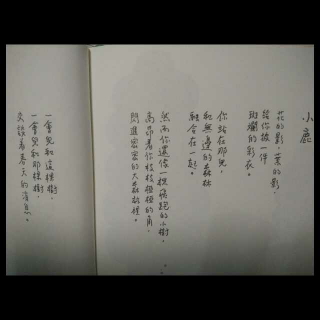 小鹿
花的影，葉的影，
給你披一件
斑斕的彩衣。
你站在那兒，
和無邊的森林
融合在一起。
然而你還像一棵飛跑的小樹，
高昂着你枝枝椏椏的角，
閃進密密的大森林裡。
一會兒和這棵樹，
一會兒和那棵樹，
交談着春天的消息。